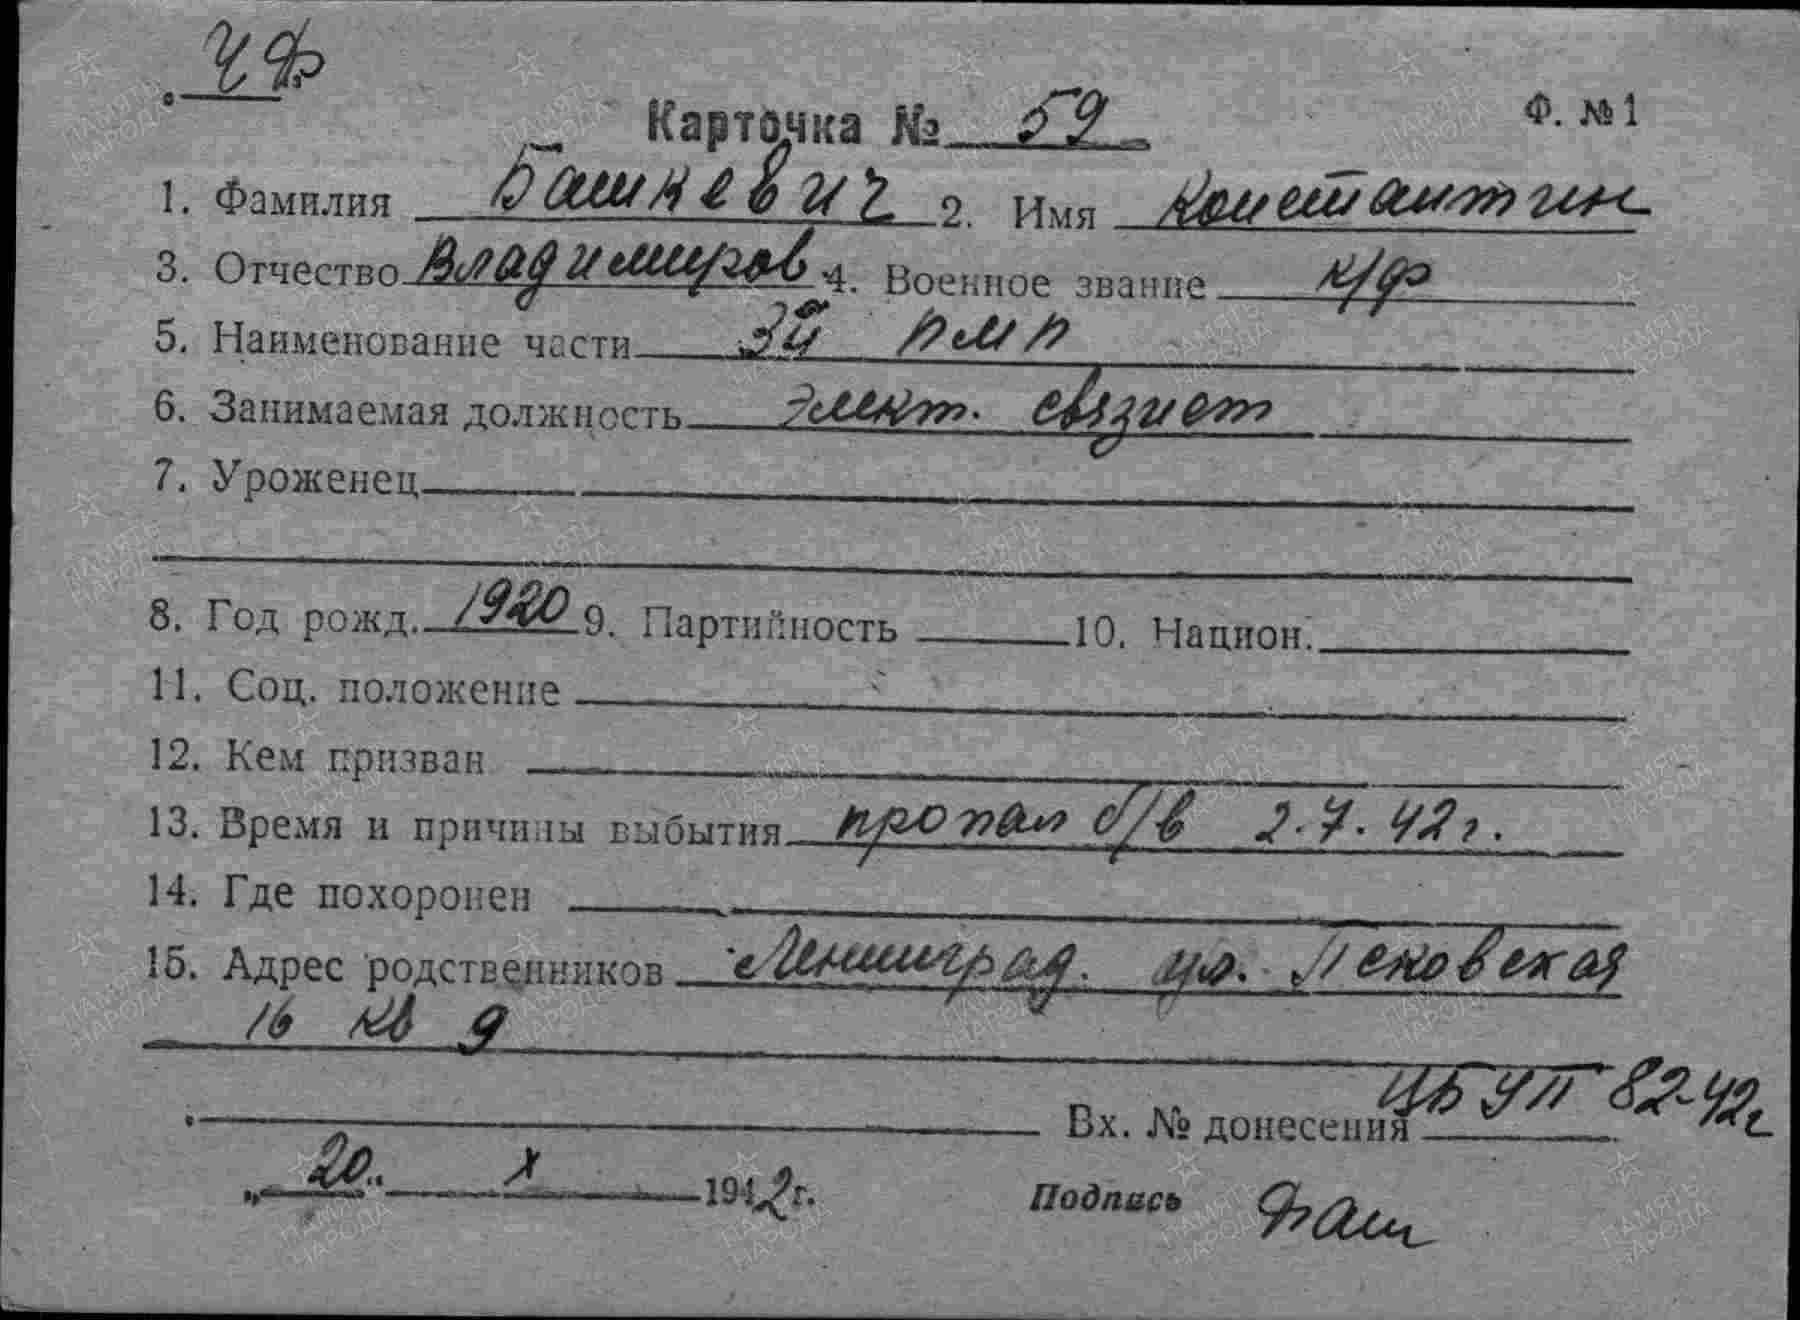 ЧФ
Карточка № 59 Ф. №1
1. Фамилия Башкевич 2. Имя Константин
3. Отчество Владимиров 4. Военное звание к/ф
5. Наименование части 3й пмп
6. Занимаемая должность Элект. связист
7. Уроженец
8. Год рожд. 1920 9. Партийность 10. Национ.
11. Соц. положение
12. Кем призван
13. Время и причины выбытия пропал б/в 2.7.42г.
14. Где похоронен
15. Адрес родственников Ленинград. ул. Псковская
16 кв 9
Вх. № донесения ЦБ УП 82-42г
„20" X 1942г. Подпись